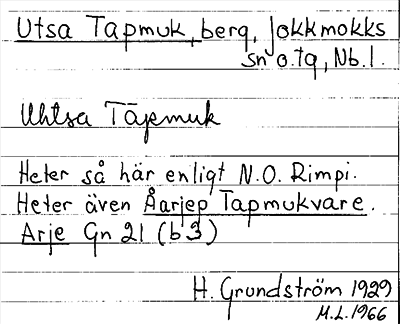 Utsa Tapmuk, berg, Jokkmokks
sn o. tg, Nb. l.
Uhtsa Tāpmuk
Heter så här enligt N.O. Rimpi.
Heter även Åarjep Tapmukvare.
Arje Gn 21 (b 3)
H. Grundström 1929
M.L. 1966